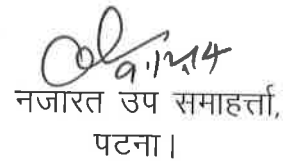 9.12.14
नजारत उप समाहर्त्ता,
पटना।